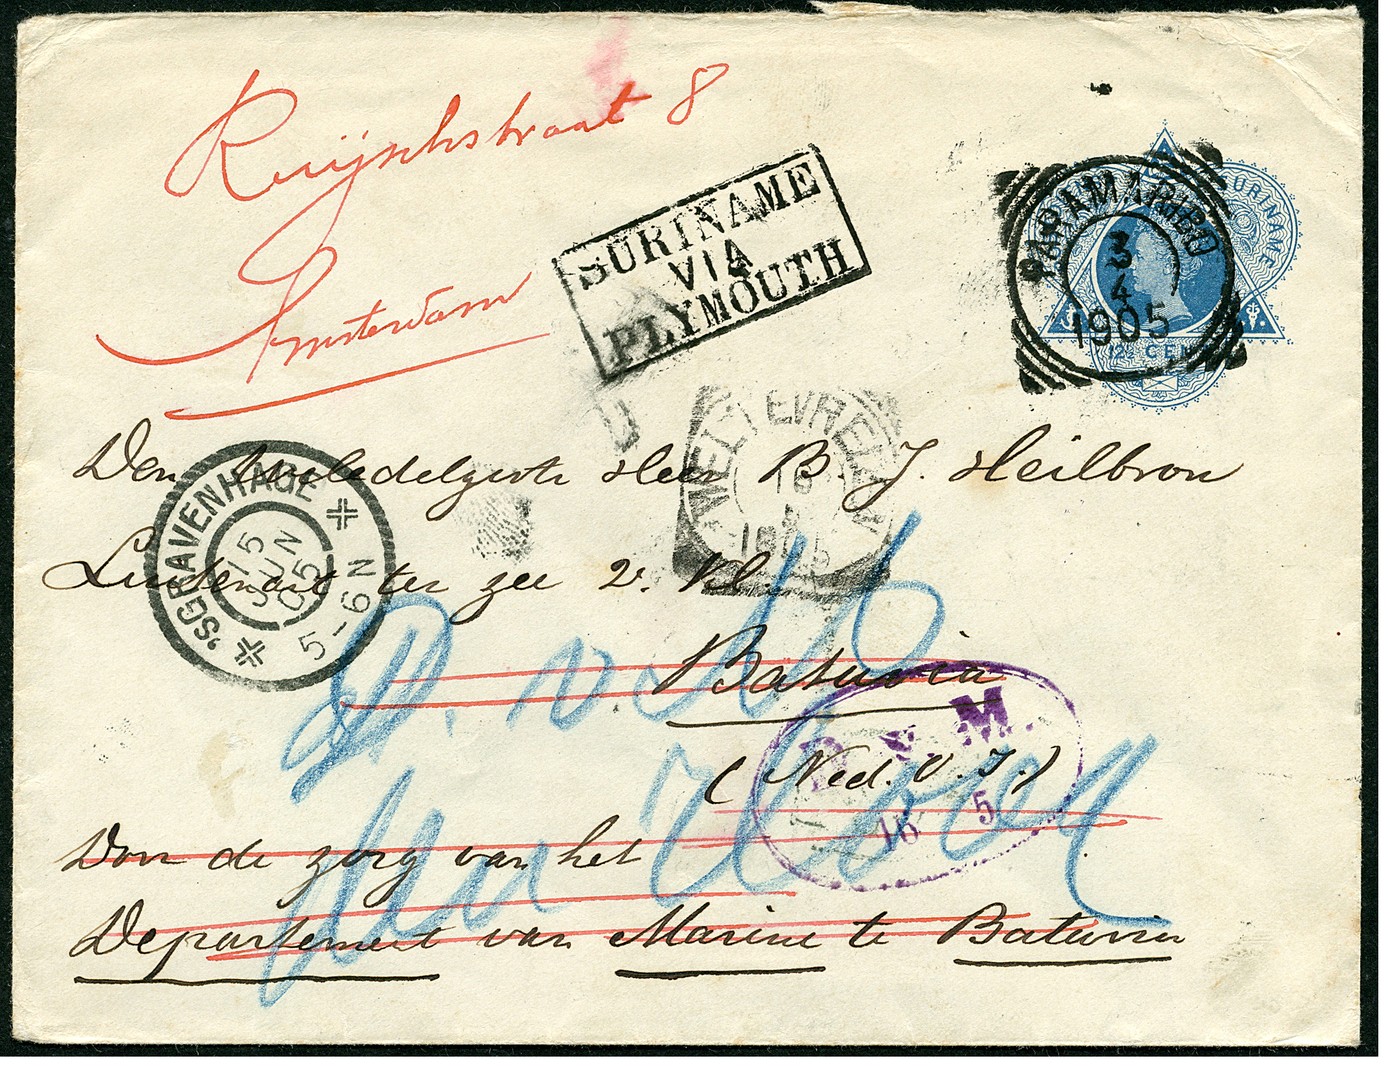 Ruijschstraat 8
Amsterdam
SURINAME
VIA
PLYMOUTH
PARAMARIBO
3
4
1905
SURINAME
12½ CENT
Den Weledelgestr. Heer B. J. Heilbron
Luitenant ter zee 2e Kl.
Batavia
(Ned. O. I.)
Door de zorg van het
Departement van Marine te Batavia
'SGRAVENHAGE
15
JUN
05
5-6 N
WELTEVREDEN
16
5
D. v. M.
16 5